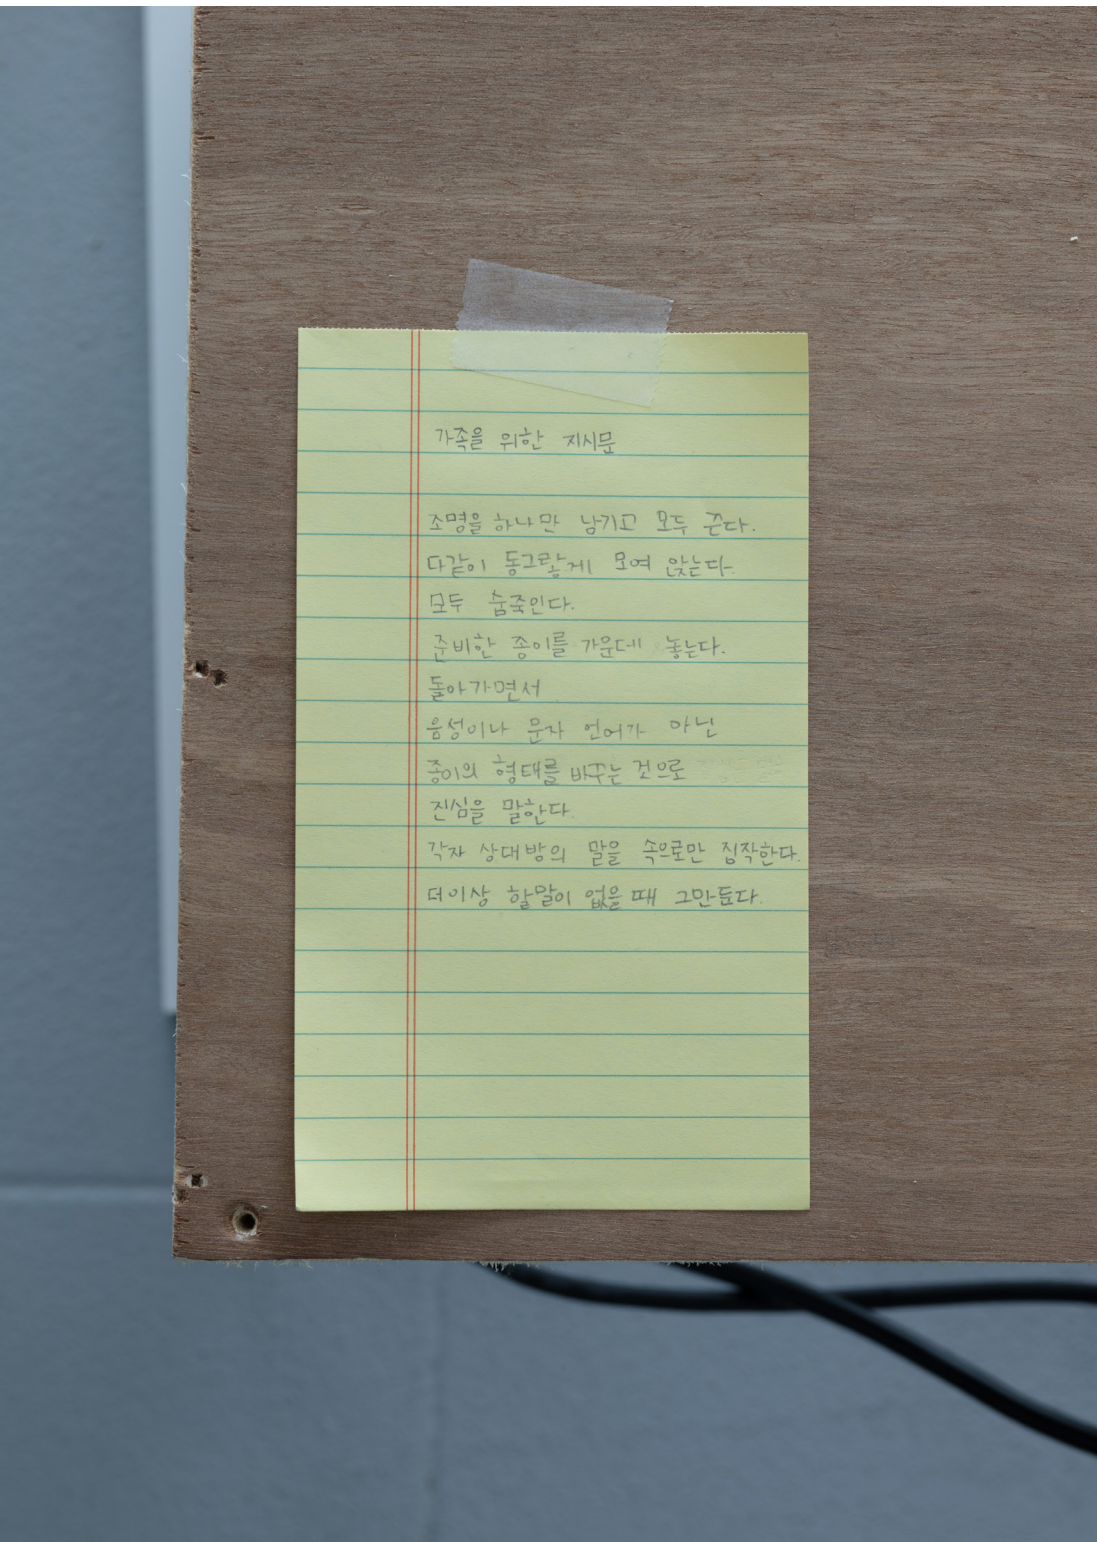 가족을 위한 지시문
조명을 하나만 남기고 모두 끈다.
다같이 동그랗게 모여 앉는다.
모두 숨죽인다.
준비한 종이를 가운데 놓는다.
돌아가면서
음성이나 문자 언어가 아닌
종이의 형태를 바꾸는 것으로
진심을 말한다.
각자 상대방의 말을 속으로만 짐작한다.
더이상 할말이 없을 때 그만둔다.